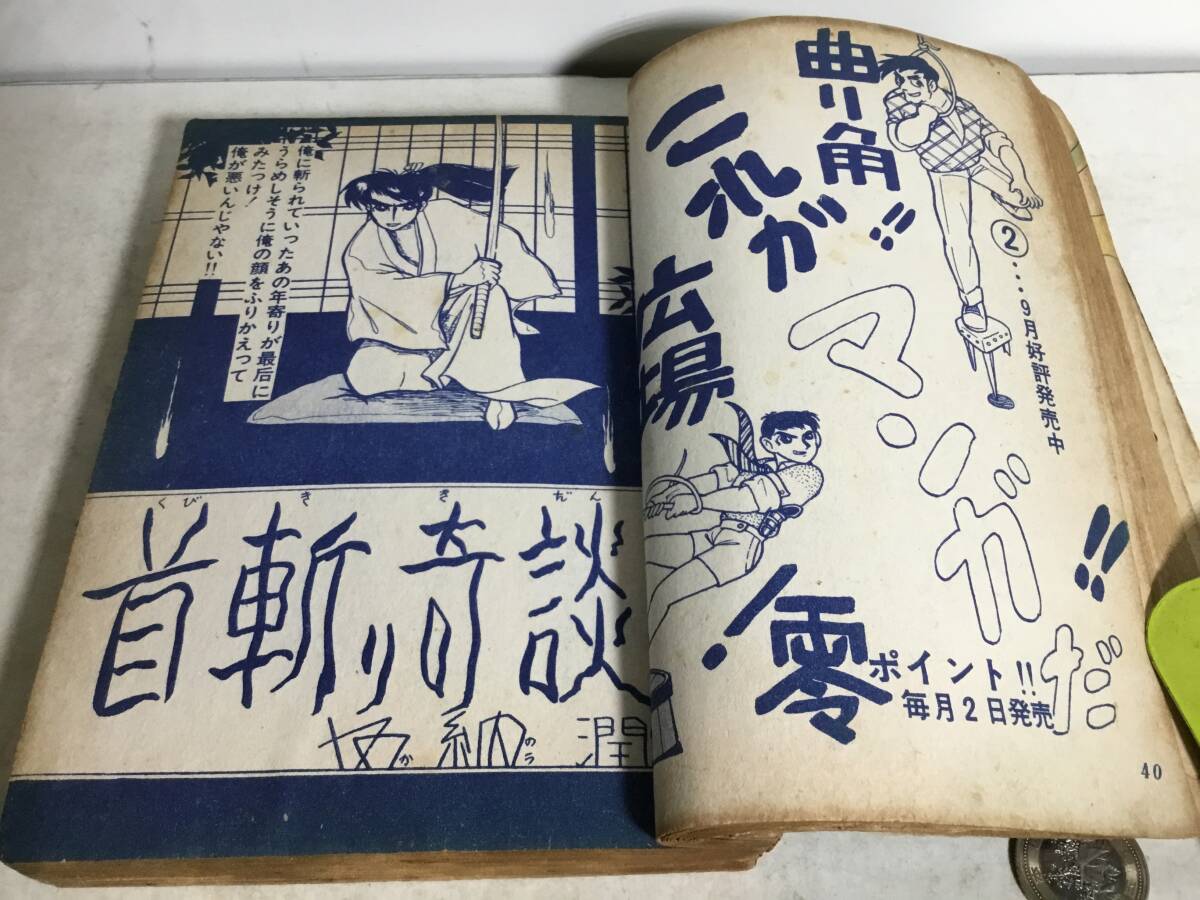 曲り角!!
これが
広場
マンガだ!!
②…9月好評発売中
零
ポイント!!
毎月2日発売
40
俺に斬られていったあの年寄りが最后に
うらめしそうに俺の顔をふりかえって
みたっけ!
俺が悪いんじゃない!!
くびききだん
首斬り奇談
加納潤
かのう